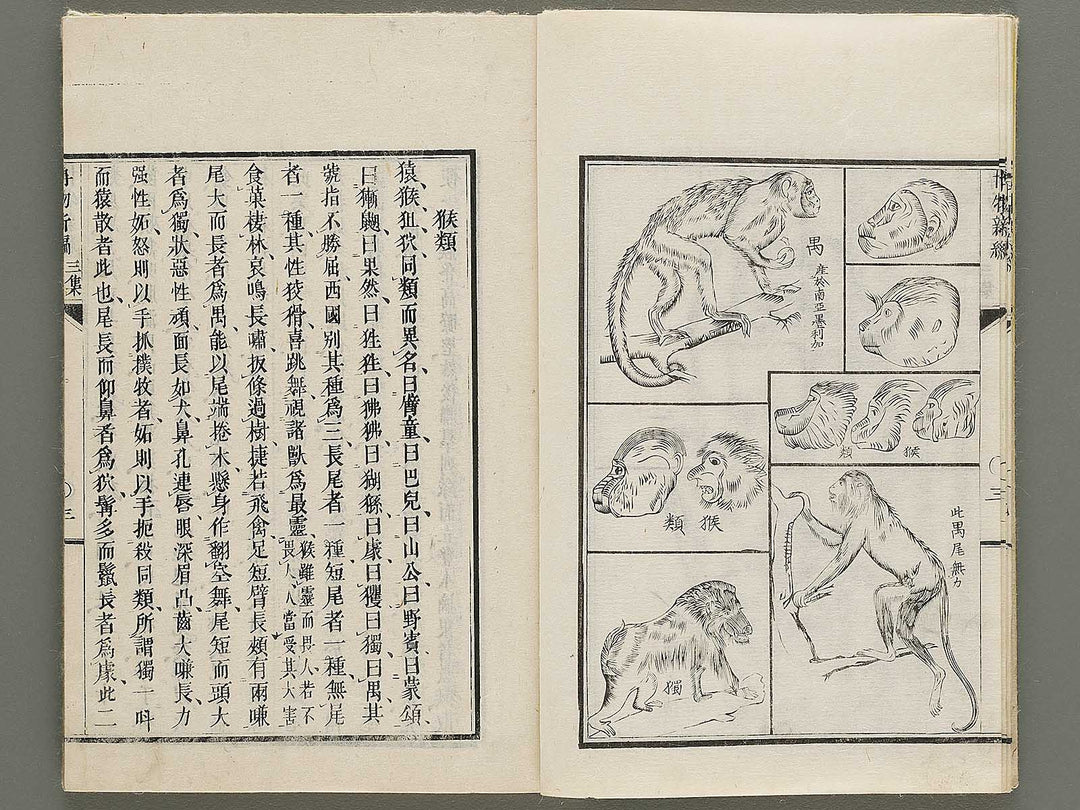 博物新編
〇三
禺
產於南亞墨利加
猴類
猴類
此禺尾無力
獨
猴類
猿猴狙狖同類而異名曰臂童曰巴兒曰山公曰野賓曰蒙頌
曰獑曰果然曰狌狌曰狒狒曰猢猻曰豦曰玃曰獨曰禺其
號指不勝屈西國別其種爲三長尾者一種短尾者一種無尾
者一種其性狡猾喜跳舞視諸獸爲最靈猴雖靈而畏人若不畏人人當受其大害
食菓棲林哀鳴長嘯扳條過樹捷若飛禽足短臂長頰有兩嗛
尾大而長者爲禺能以尾端捲木懸身作翻空舞尾短而頭大
者爲獨狀惡性頑面長如犬鼻孔連唇眼深眉凸齒大嗛長力
强性妬怒則以手抓撲牧者妬則以手扼殺同類所謂獨一呌
而猿散者此也尾長而仰鼻者爲狖髯多而鬣長者爲豦此二
博物新編 三集
〇三